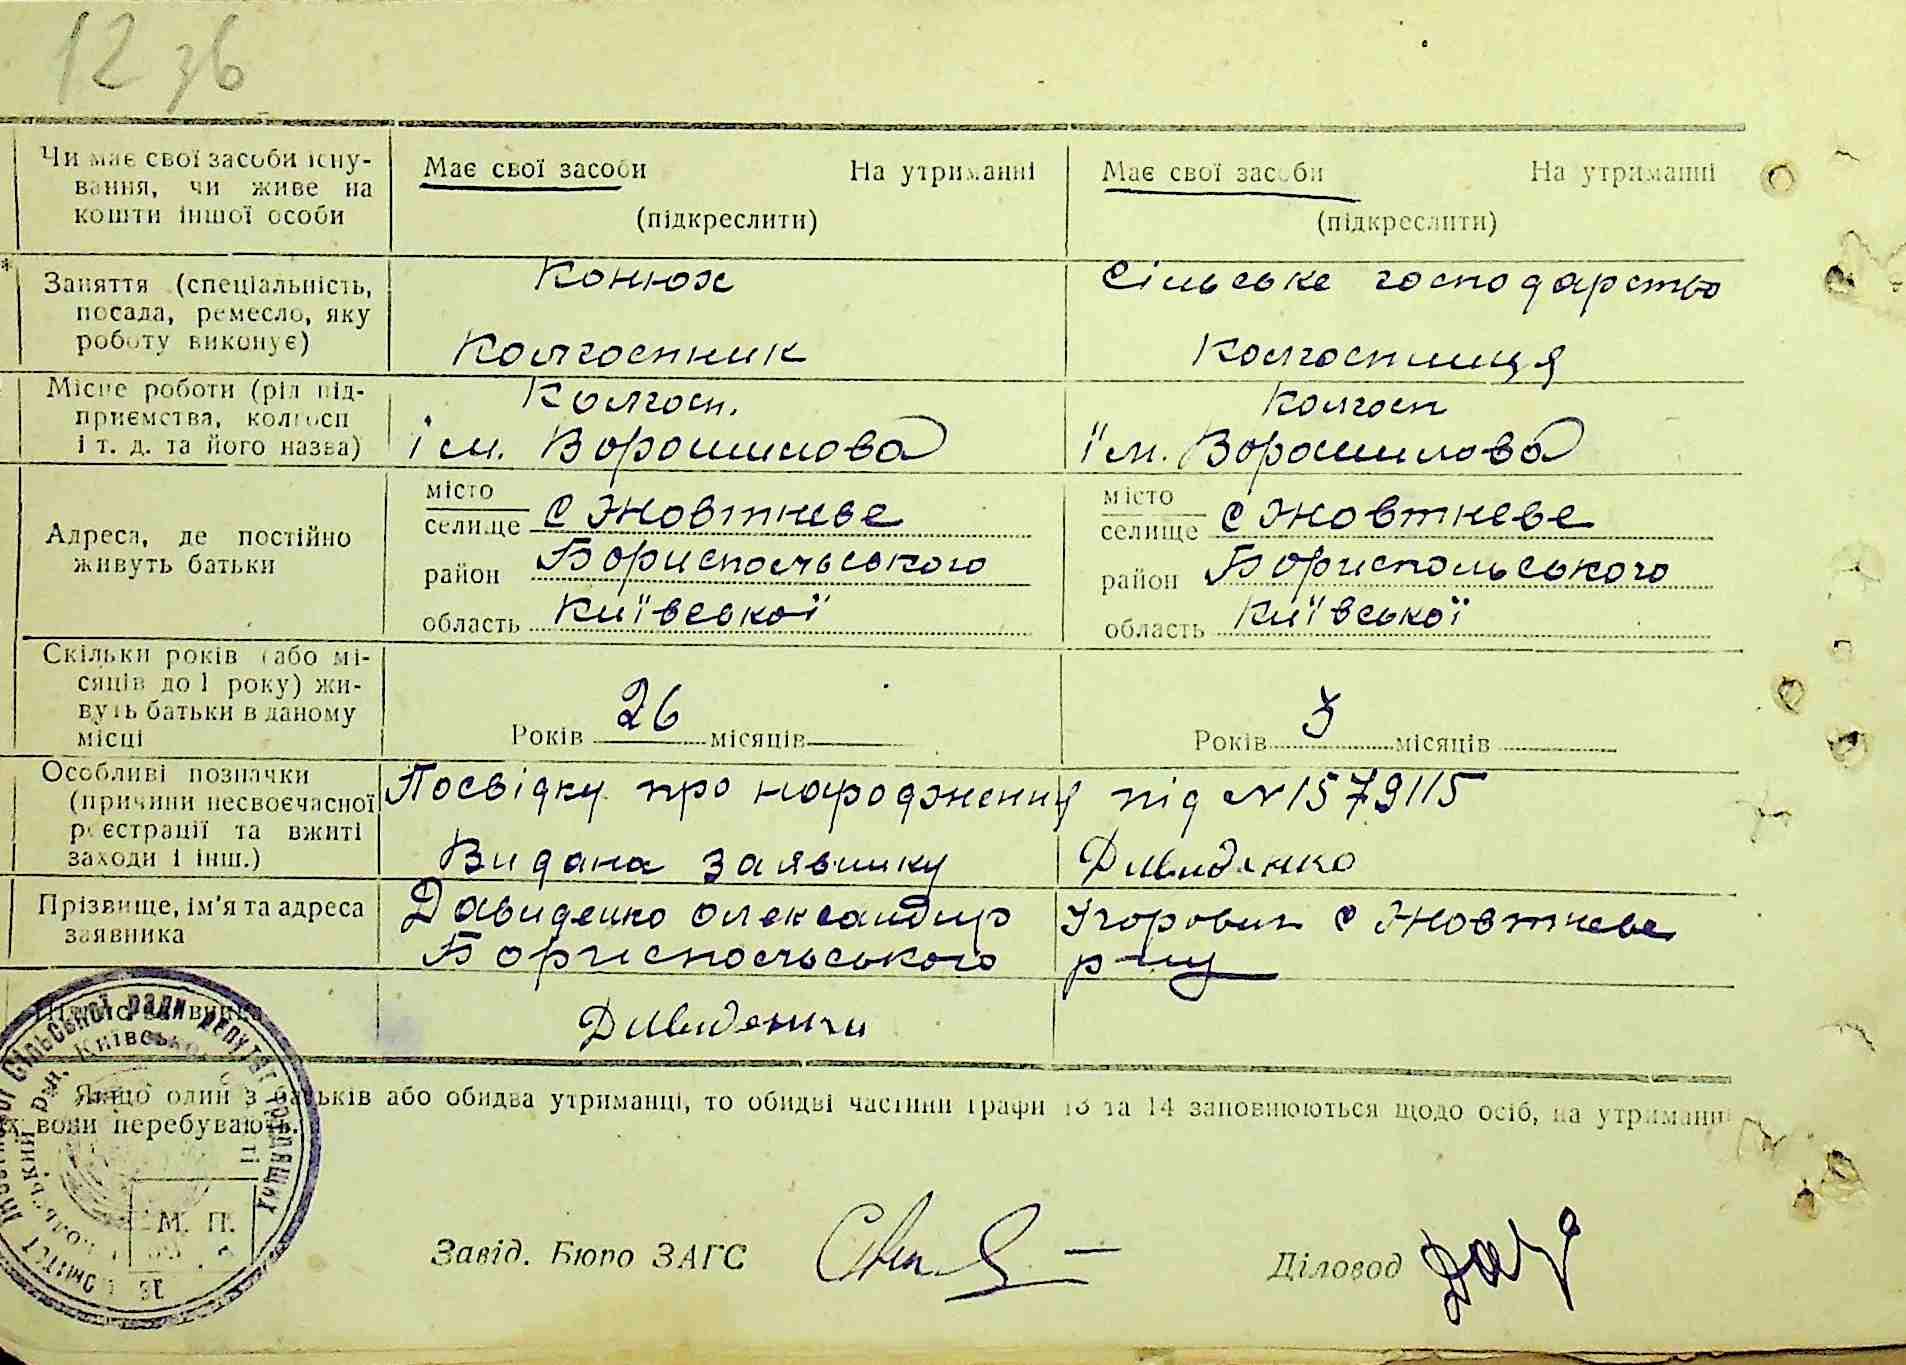 12 зв
Чи має свої засоби існу-
вання, чи живе на
кошти іншої особи
Має свої засоби На утриманні
(підкреслити)
Має свої засоби На утриманні
(підкреслити)
* Заняття (спеціальність,
посада, ремесло, яку
роботу виконує)
Конюх
Колгоспник
Сільське господарство
Колгоспниця
Місце роботи (рід під-
приємства, колгосп
і т. д. та його назва)
Колгосп.
ім. Ворошилова
Колгосп
ім. Ворошилова
Адреса, де постійно
живуть батьки
місто
селище с Жовтневе
район Бориспольського
область Київської
місто
селище с Жовтневе
район Бориспольського
область Київської
Скільки років (або мі-
сяців до 1 року) жи-
вуть батьки в даному
місці
Років 26 місяців
Років 3 місяців
Особливі позначки
(причини несвоєчасної
реєстрації та вжиті
заходи і інш.)
Посвідку про народження під №1579115
Видана заявнику Давиденко
Прізвище, ім'я та адреса
заявника
Давиденко Олександр Ігорович с Жовтневе
Бориспольського р-ну
Підпис заявника
Якщо один з батьків або обидва утриманці, то обидві частини графи 13 та 14 заповнюються щодо осіб, на утриманні
їх вони перебувають.
сільської ради депутатів трудящих
Київської
М. П.
Завід. Бюро ЗАГС
Діловод